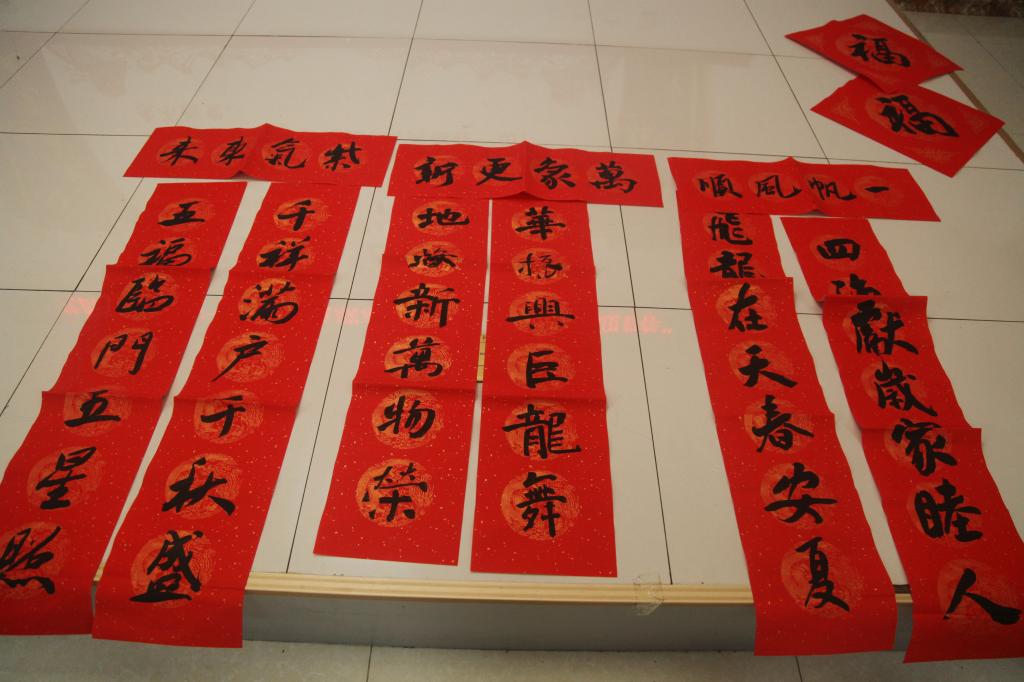 福
福
紫氣東来
千祥满户千秋盛
五福臨門五星照
萬象更新
華振興巨龍舞
地新萬物榮
一帆風順
四獻歲家睦人
飛龍在天春安夏